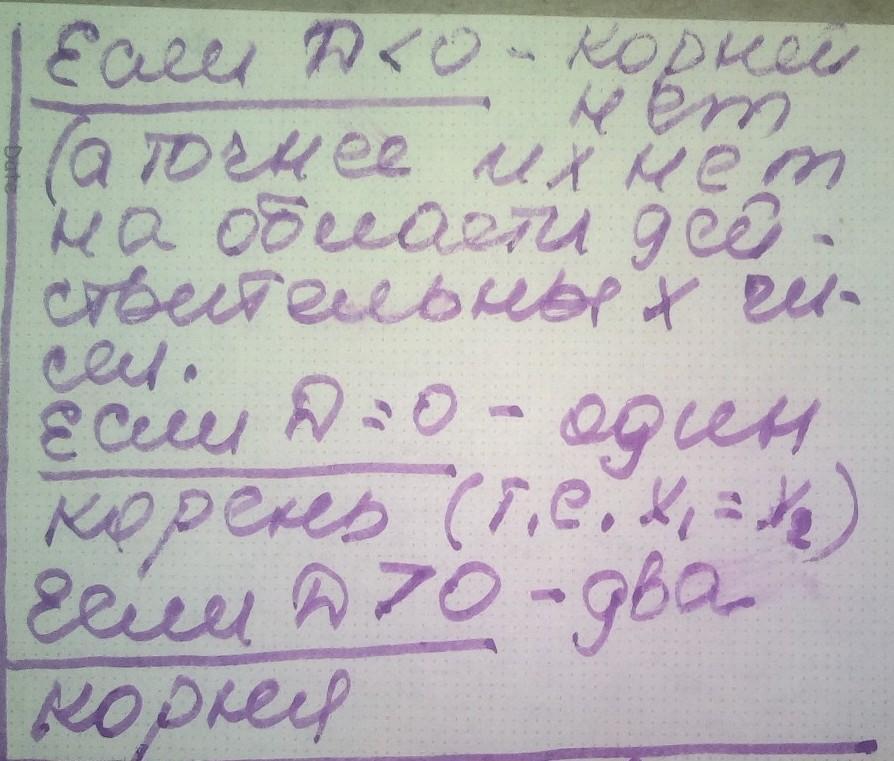 Если D<0 - корней
нет
(а точнее их нет
на области дей-
ствительных чи-
сел.
Если D=0 - один
корень (т.е. x₁=x₂)
Если D>0 - два
корня
Date